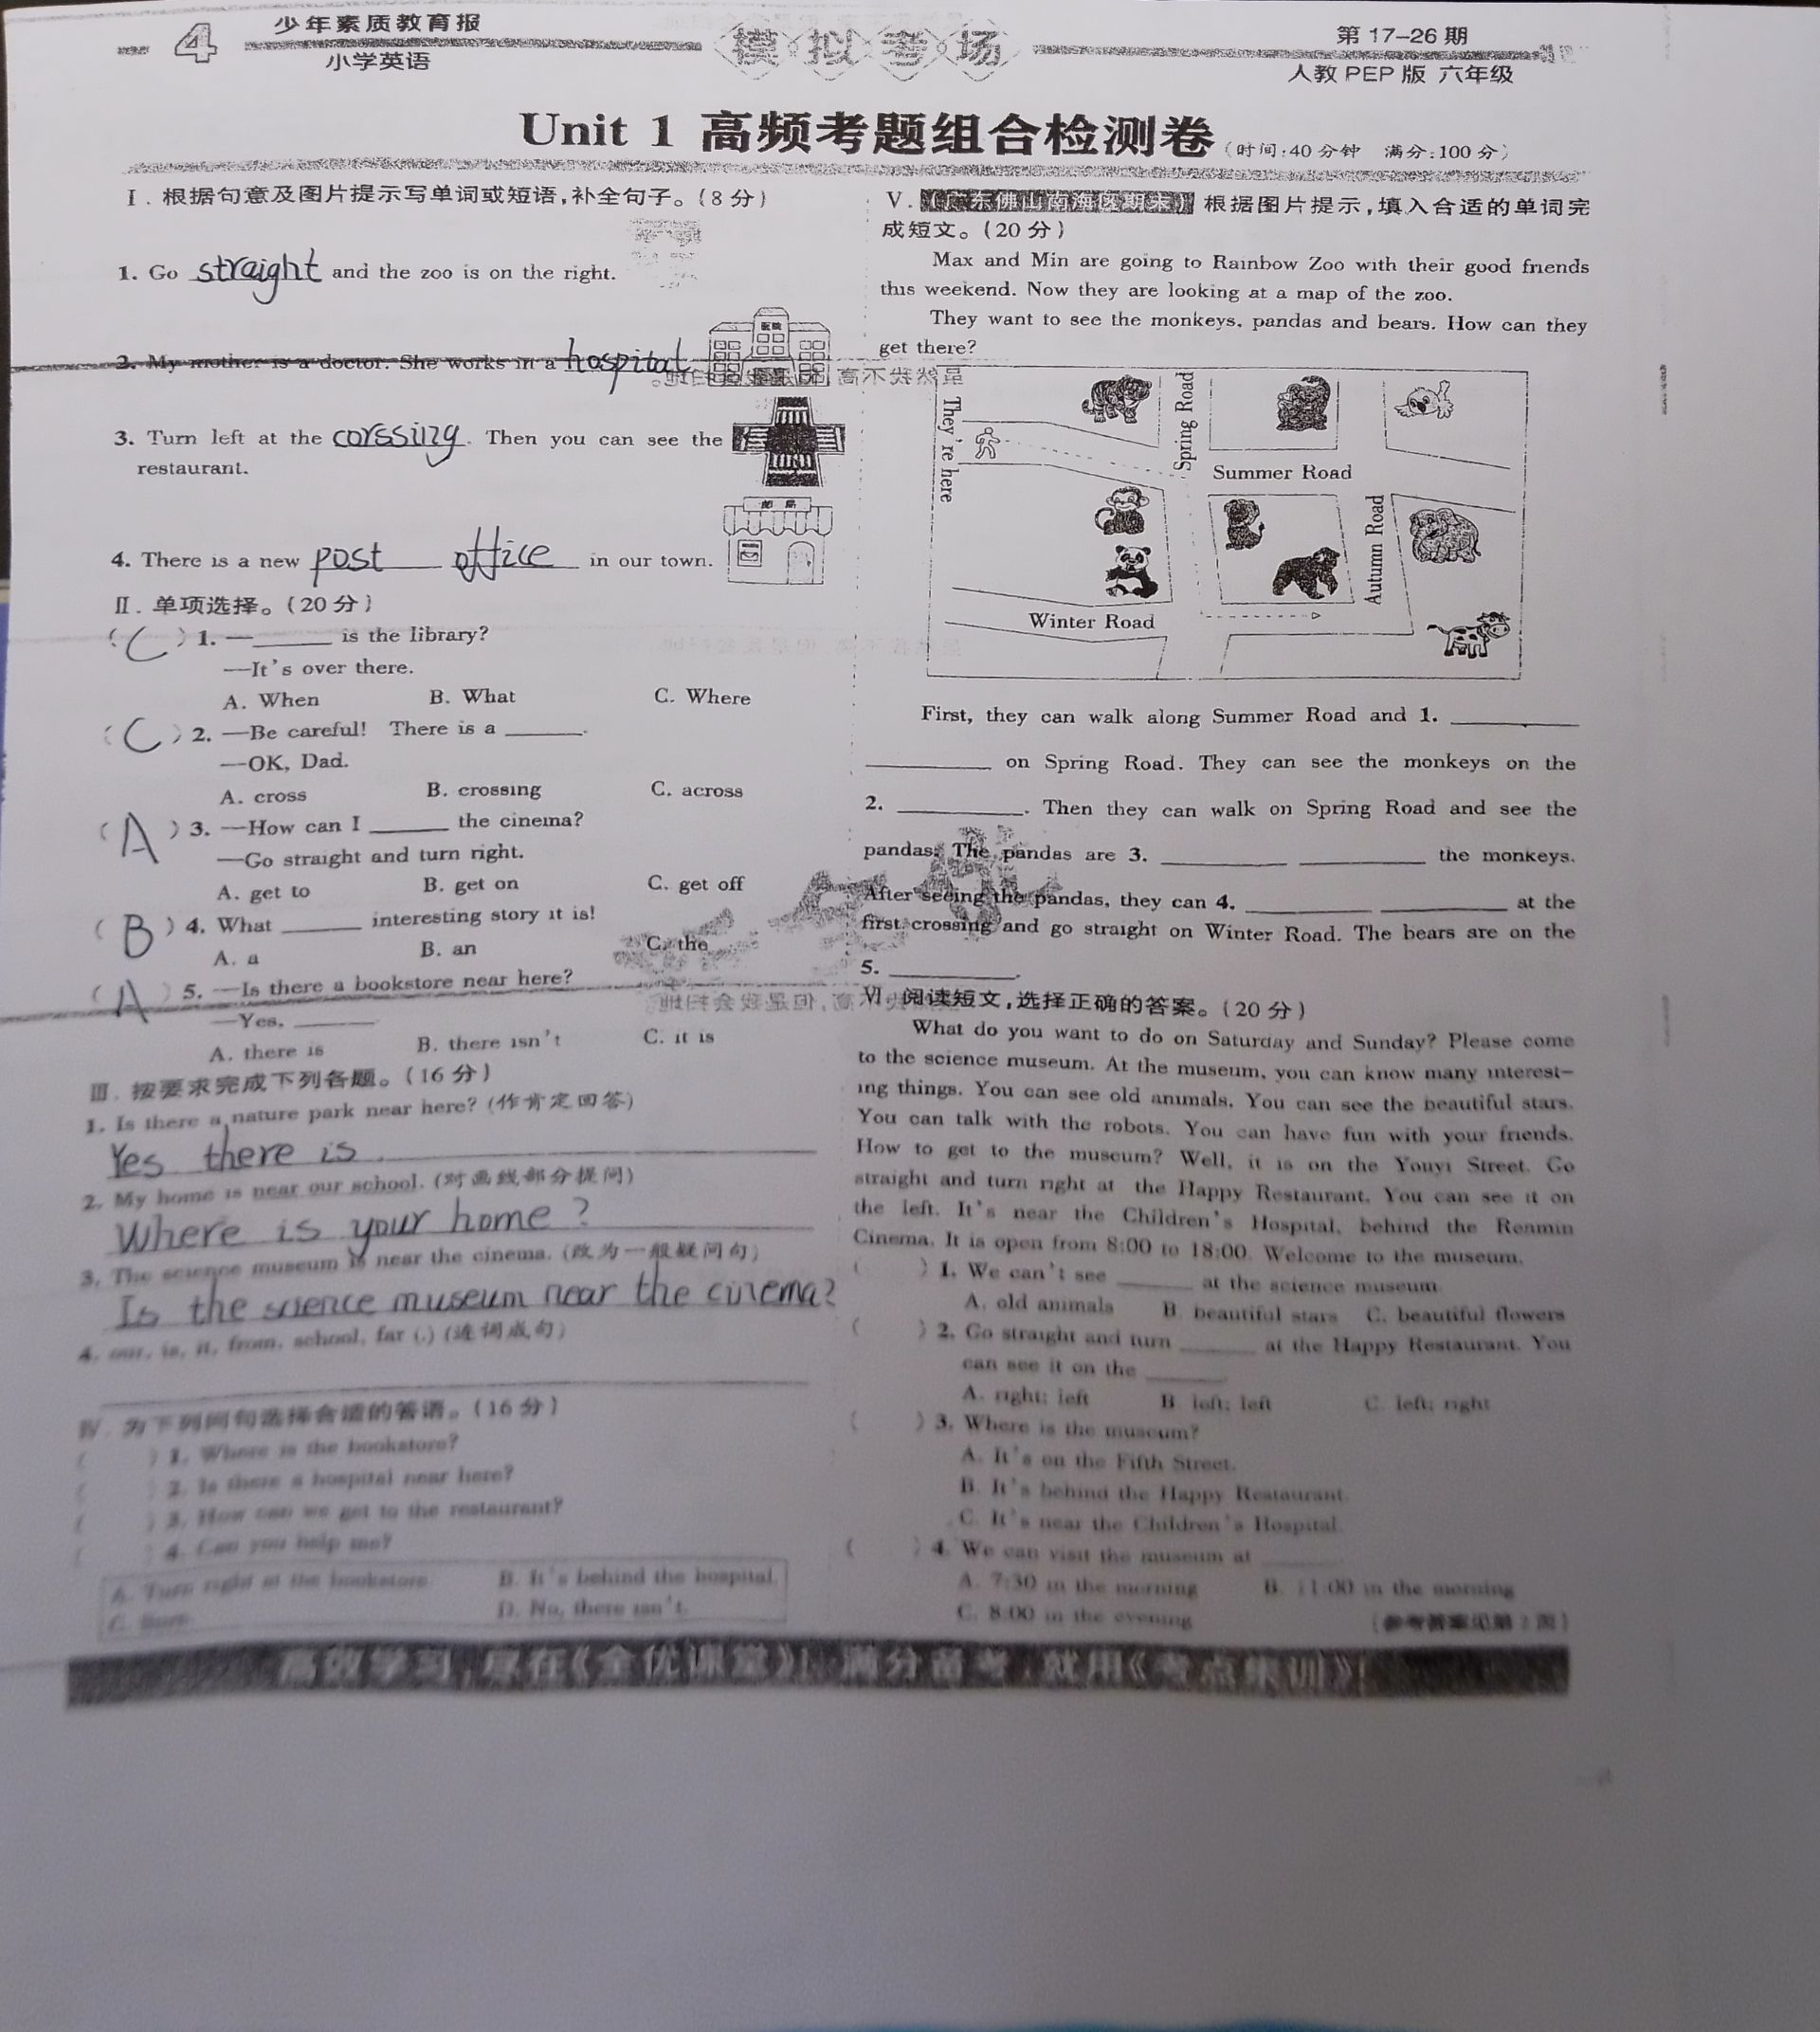 4
少年素质教育报
小学英语
模拟考场
第 17-26 期
人教 PEP 版 六年级
Unit 1 高频考题组合检测卷(时间:40 分钟 满分:100 分)
Ⅰ. 根据句意及图片提示写单词或短语,补全句子。(8 分)
1. Go straight and the zoo is on the right.
2. My mother is a doctor. She works in a hospital
医院
3. Turn left at the corssing. Then you can see the
restaurant.
邮局
4. There is a new post office in our town.
Ⅱ. 单项选择。(20 分)
(C) 1. —______ is the library?
—It's over there.
A. When B. What C. Where
(C) 2. —Be careful! There is a ______.
—OK, Dad.
A. cross B. crossing C. across
(A) 3. —How can I ______ the cinema?
—Go straight and turn right.
A. get to B. get on C. get off
(B) 4. What ______ interesting story it is!
A. a B. an C. the
(A) 5. —Is there a bookstore near here?
—Yes, ______
A. there is B. there isn't C. it is
Ⅲ. 按要求完成下列各题。(16 分)
1. Is there a nature park near here? (作肯定回答)
Yes there is .
2. My home is near our school. (对画线部分提问)
Where is your home ?
3. The science museum is near the cinema. (改为一般疑问句)
Is the science museum near the cinema?
4. our, is, it, from, school, far (.) (连词成句)
Ⅳ. 为下列问句选择合适的答语。(16 分)
( ) 1. Where is the bookstore?
( ) 2. Is there a hospital near here?
( ) 3. How can we get to the restaurant?
( ) 4. Can you help me?
A. Turn right at the bookstore. B. It's behind the hospital.
C. Sure. D. No, there isn't.
Ⅴ. (广东佛山南海区期末) 根据图片提示,填入合适的单词完
成短文。(20 分)
Max and Min are going to Rainbow Zoo with their good friends
this weekend. Now they are looking at a map of the zoo.
They want to see the monkeys, pandas and bears. How can they
get there?
They're here
Spring Road
Summer Road
Autumn Road
Winter Road
First, they can walk along Summer Road and 1. ______
______ on Spring Road. They can see the monkeys on the
2. ______. Then they can walk on Spring Road and see the
pandas. The pandas are 3. ______ ______ the monkeys.
After seeing the pandas, they can 4. ______ ______ at the
first crossing and go straight on Winter Road. The bears are on the
5. ______.
Ⅵ. 阅读短文,选择正确的答案。(20 分)
What do you want to do on Saturday and Sunday? Please come
to the science museum. At the museum, you can know many interest-
ing things. You can see old animals. You can see the beautiful stars.
You can talk with the robots. You can have fun with your friends.
How to get to the museum? Well, it is on the Youyi Street. Go
straight and turn right at the Happy Restaurant. You can see it on
the left. It's near the Children's Hospital, behind the Renmin
Cinema. It is open from 8:00 to 18:00. Welcome to the museum.
( ) 1. We can't see ______ at the science museum.
A. old animals B. beautiful stars C. beautiful flowers
( ) 2. Go straight and turn ______ at the Happy Restaurant. You
can see it on the ______.
A. right; left B. left; left C. left; right
( ) 3. Where is the museum?
A. It's on the Fifth Street.
B. It's behind the Happy Restaurant.
C. It's near the Children's Hospital.
( ) 4. We can visit the museum at ______
A. 7:30 in the morning B. 11:00 in the morning
C. 8:00 in the evening
(参考答案见第 2 页)
高效学习,尽在《全优课堂》! 满分备考,就用《考点集训》!